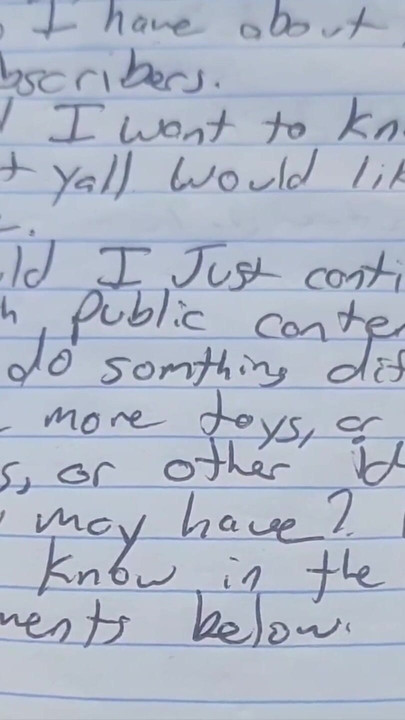 I have about
bscribers.
I want to kn
t yall would lik
.
ld I Just conti
h public conten
do somthing dif
more toys, or
s, or other id
may have?
Know in the
ments below.